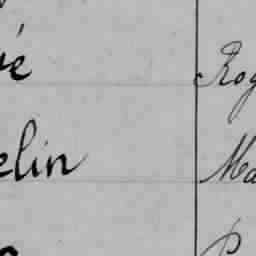 é Rog
elin Ma